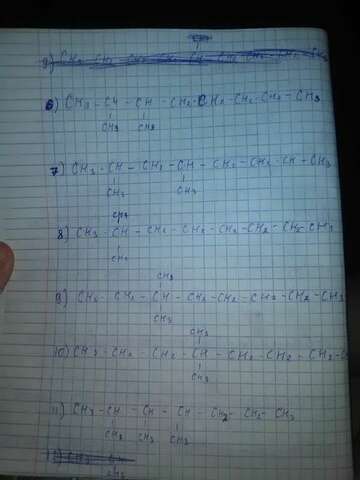 6) CH3 - CH - CH - CH2 - CH2 - CH2 - CH2 - CH3
CH3 CH3
7) CH3 - CH - CH2 - CH - CH2 - CH2 - CH - CH3
CH3 CH3
CH3
8) CH3 - CH - CH2 - CH2 - CH2 - CH2 - CH2 - CH3
CH3
CH3
9) CH3 - CH2 - CH - CH2 - CH2 - CH2 - CH2 - CH3
CH3
CH3
10) CH3 - CH2 - CH2 - CH - CH2 - CH2 - CH2 -
CH3
11) CH3 - CH - CH - CH - CH2 - CH2 - CH3
CH3 CH3 CH3
CH3